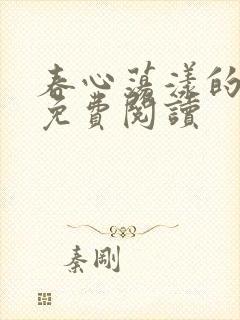 春心蕩漾的
免費閱讀
秦剛